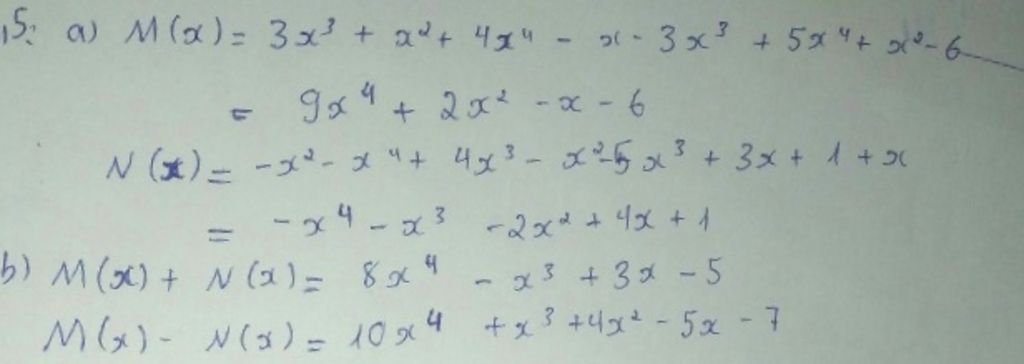 15: a) M(x) = 3x³ + x² + 4x⁴ - x - 3x³ + 5x⁴ + x² - 6
= 9x⁴ + 2x² - x - 6
N(x) = -x² - x⁴ + 4x³ - x² - 5x³ + 3x + 1 + x
= -x⁴ - x³ - 2x² + 4x + 1
b) M(x) + N(x) = 8x⁴ - x³ + 3x - 5
M(x) - N(x) = 10x⁴ + x³ + 4x² - 5x - 7